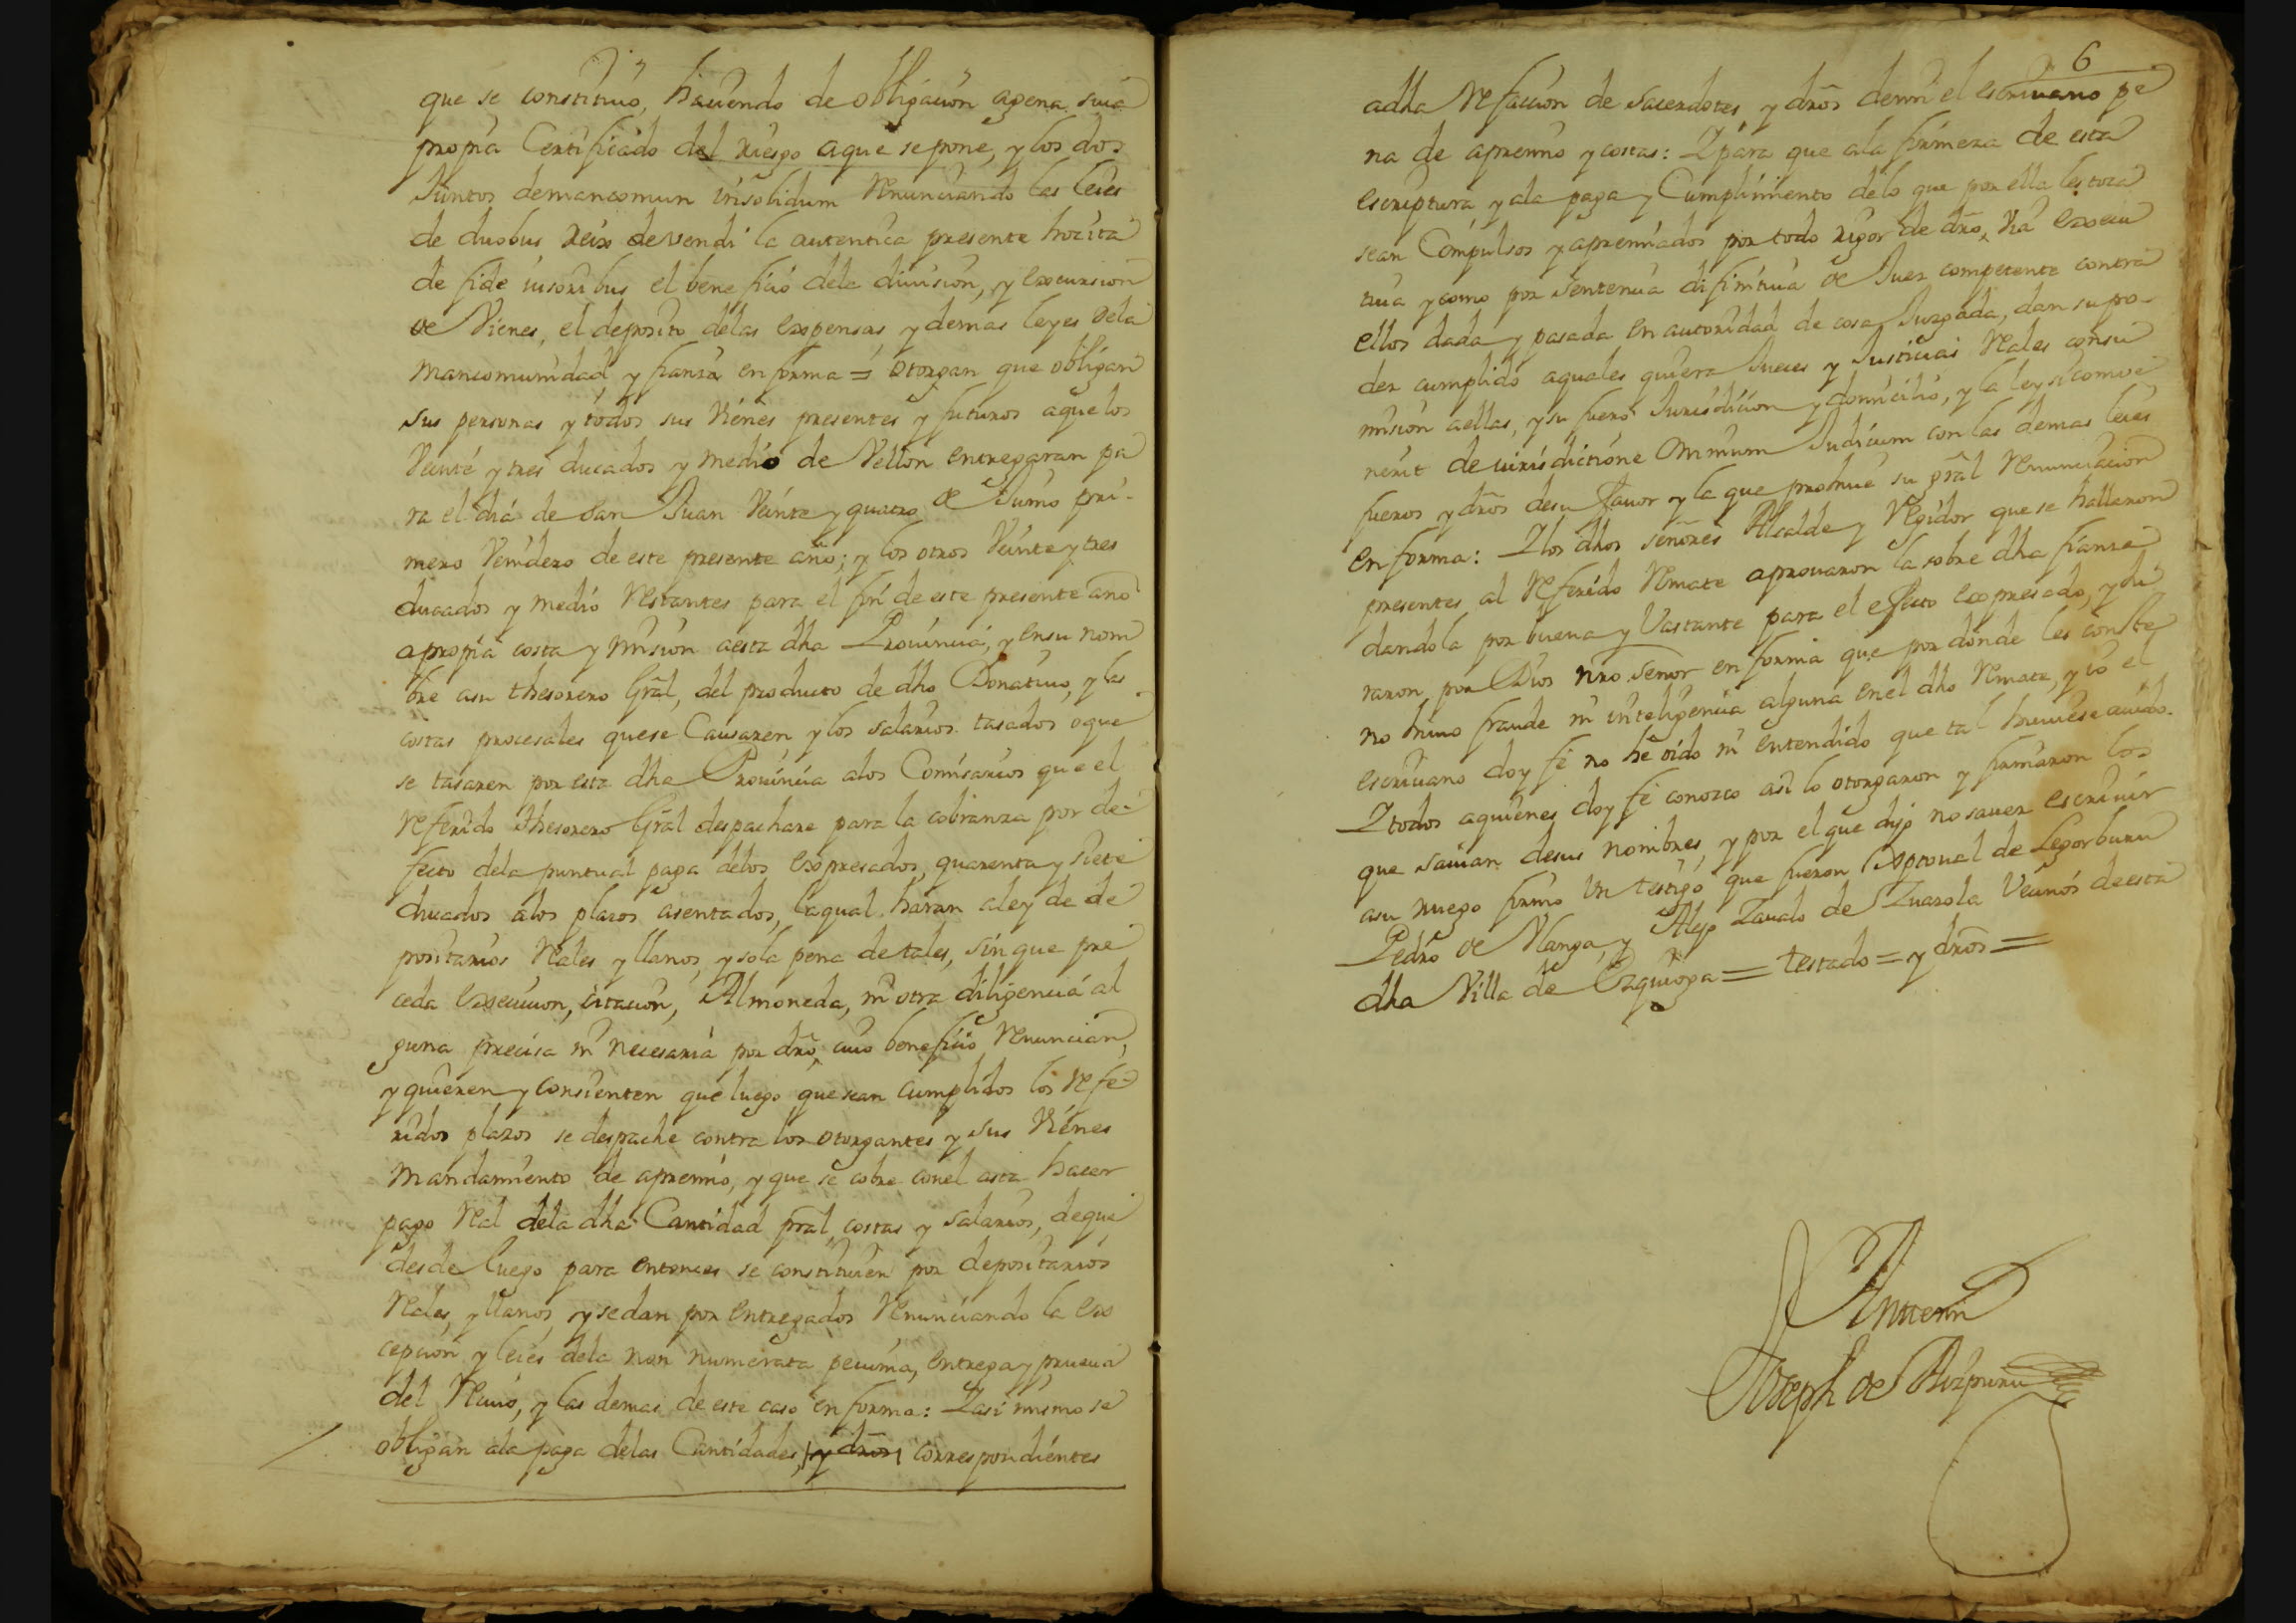 que se constituio, haciendo de obligacion agena suia
propia Certificado del riesgo aque se pone, y los dos
Juntos demancomun insolidum Renunciando las leies
de duobus reis devendi la autentica presente hocita
de fide iusoribus el beneficio dela diuision, y excursion
de Vienes, el deposito delas expensas, y demas leyes dela
mancomunidad y fianza en forma = otorgan que obligan
sus personas y todos sus Vienes presentes y futuros aque los
Veinte y tres ducados y medio de Vellon entregaran pa
ra el dia de San Juan Veinte y quatro de Junio pri-
mero Venidero de este presente año; y los otros Veinte y tres
ducados y medio Restantes para el fin de este presente año
apropia costa y mision aesta dha Prouincia, y ensu nom
bre asu thesorero Gral, del producto de dho Donatiuo, y las
costas procesales quese Causaren y los salarios tasados oque
se tasaren por esta dha Prouincia alos Comisarios que el
Referido thesorero Gral despachare para la cobranza por de-
fecto dela puntual paga delos expresados, quarenta y siete
ducados alos plazos asentados, laqual haran aley de de
positarios Reales y llanos, y sola pena de tales, sin que pre
ceda execucion, citacion, Almoneda, ni otra diligencia al
guna precisa ni necesaria por dro, cuio beneficio Renuncian,
y quieren y consienten que luego que sean cumplidos los Refe-
ridos plazos se despache contra los otorgantes y sus Vienes
mandamiento de apremio, y que se cobre conel asta hacer
pago Real dela dha Cantidad pral, costas y salarios, deque
desde luego para entonces se constituien por depositarios
Reales, y llanos, y sedan por entregados Renunciando la ex
cepcion y leies dela non numerata pecunia, entrega y prueua
del Reciuo, y las demas de este caso en forma: Y asi mismo se
obligan ala paga delas Cantidades, y dros correspondientes
6
adha Refaccion de Sacerdotes, y dros demi el escriuano pe
na de apremio y costas: Y para que ala firmeza de esta
escriptura, y ala paga y Cumplimiento delo que por ella les toca
sean Compulsos y apremiados por todo rigor de dro, Via execu
tiua y como por sentencia difinitiua de Juez competente contra
ellos dada y pasada en autoridad de cosa Juzgada, dan su po-
der cumplido aquales quiera Jueces y Justicias Reales consu
mision aellas, y su fuero Jurisdicion y domicilio, y la ley si conve
nerit de iurisdictione Omnium Judicum con las demas leies
fueros y dros desu fauor y la que prohiue su gral Renunciacion
en forma: Y los dhos señores Alcalde y Regidor que se hallaron
presentes al Referido Remate aprouaron la sobre dha fianza
dandola por buena y Vastante para el efecto expresado, y ju
raron por Dios nro Señor en forma que por donde les conste
no huuo fraude ni inteligencia alguna en el dho Remate, y io el
escriuano doy fe no he oido ni entendido que tal huuiese auido.
Y todos aquienes doy fe conozco asi lo otorgaron y firmaron los
que sauian desus nombres, y por el que dijo no sauer escriuir
asu ruego firmo Vn testigo que fueron Xptoual de Legorburu
Pedro de Vlanga, y Alejo Zaualo de Zuazola Vecinos deesta
dha Villa de Ezquioga = testado = y dros =
Antemi
Joseph de Aizpuru